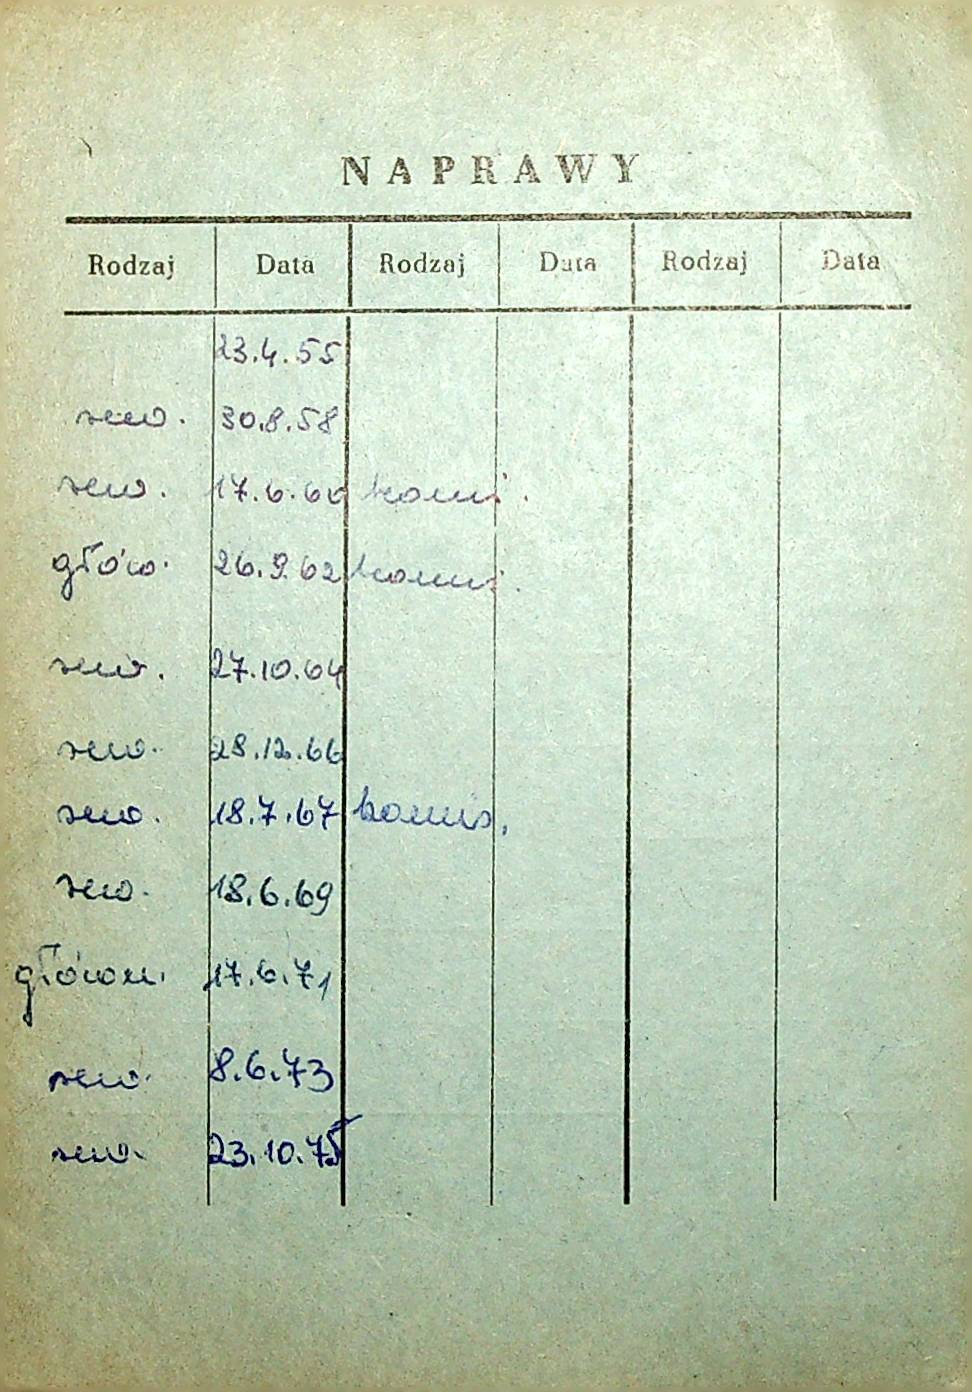 NAPRAWY
Rodzaj Data Rodzaj Data Rodzaj Data
23.4.55
rew. 30.8.58
rew. 17.6.60 komis.
głów. 26.9.62 komis.
rew. 27.10.64
rew. 28.12.66
rew. 18.7.67 komis.
rew. 18.6.69
główn. 17.6.71
rew. 8.6.73
rew. 23.10.75